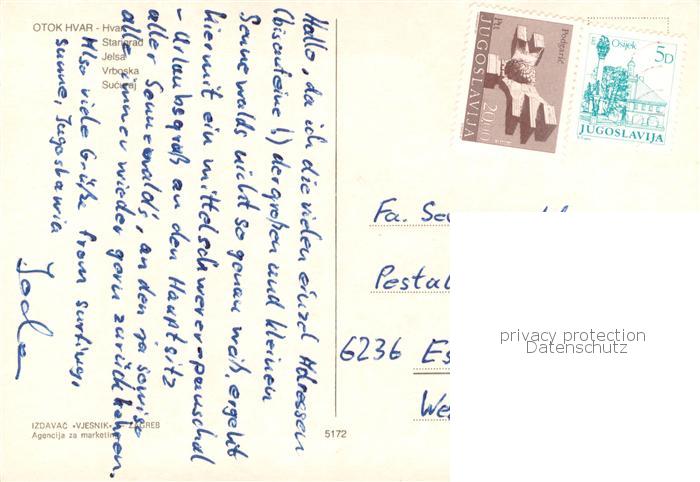 OTOK HVAR - Hvar
Starigrad
Jelsa
Vrboska
Sućuraj
Hallo, da ich die vielen einzel Adressen
(bis auf eine!) der großen und kleinen
Sennewalds nicht so genau weiß, ergeht
hiermit ein mittelschwerer pauschal
- Urlaubsgruß an den Hauptsitz
aller Sennewald's, an den ja sowieso
alle immer wieder gern zurückkehren.
Also viele Grüße from surfing,
sunne, Jugoslawia
IZDAVAČ «VJESNIK» ZAGREB
Agencija za marketing
5172
Ptt
Podgarić
JUGOSLAVIJA
20.00
Osijek
5D
JUGOSLAVIJA
Fa. Se
Pestal
6236 Es
We
privacy protection
Datenschutz